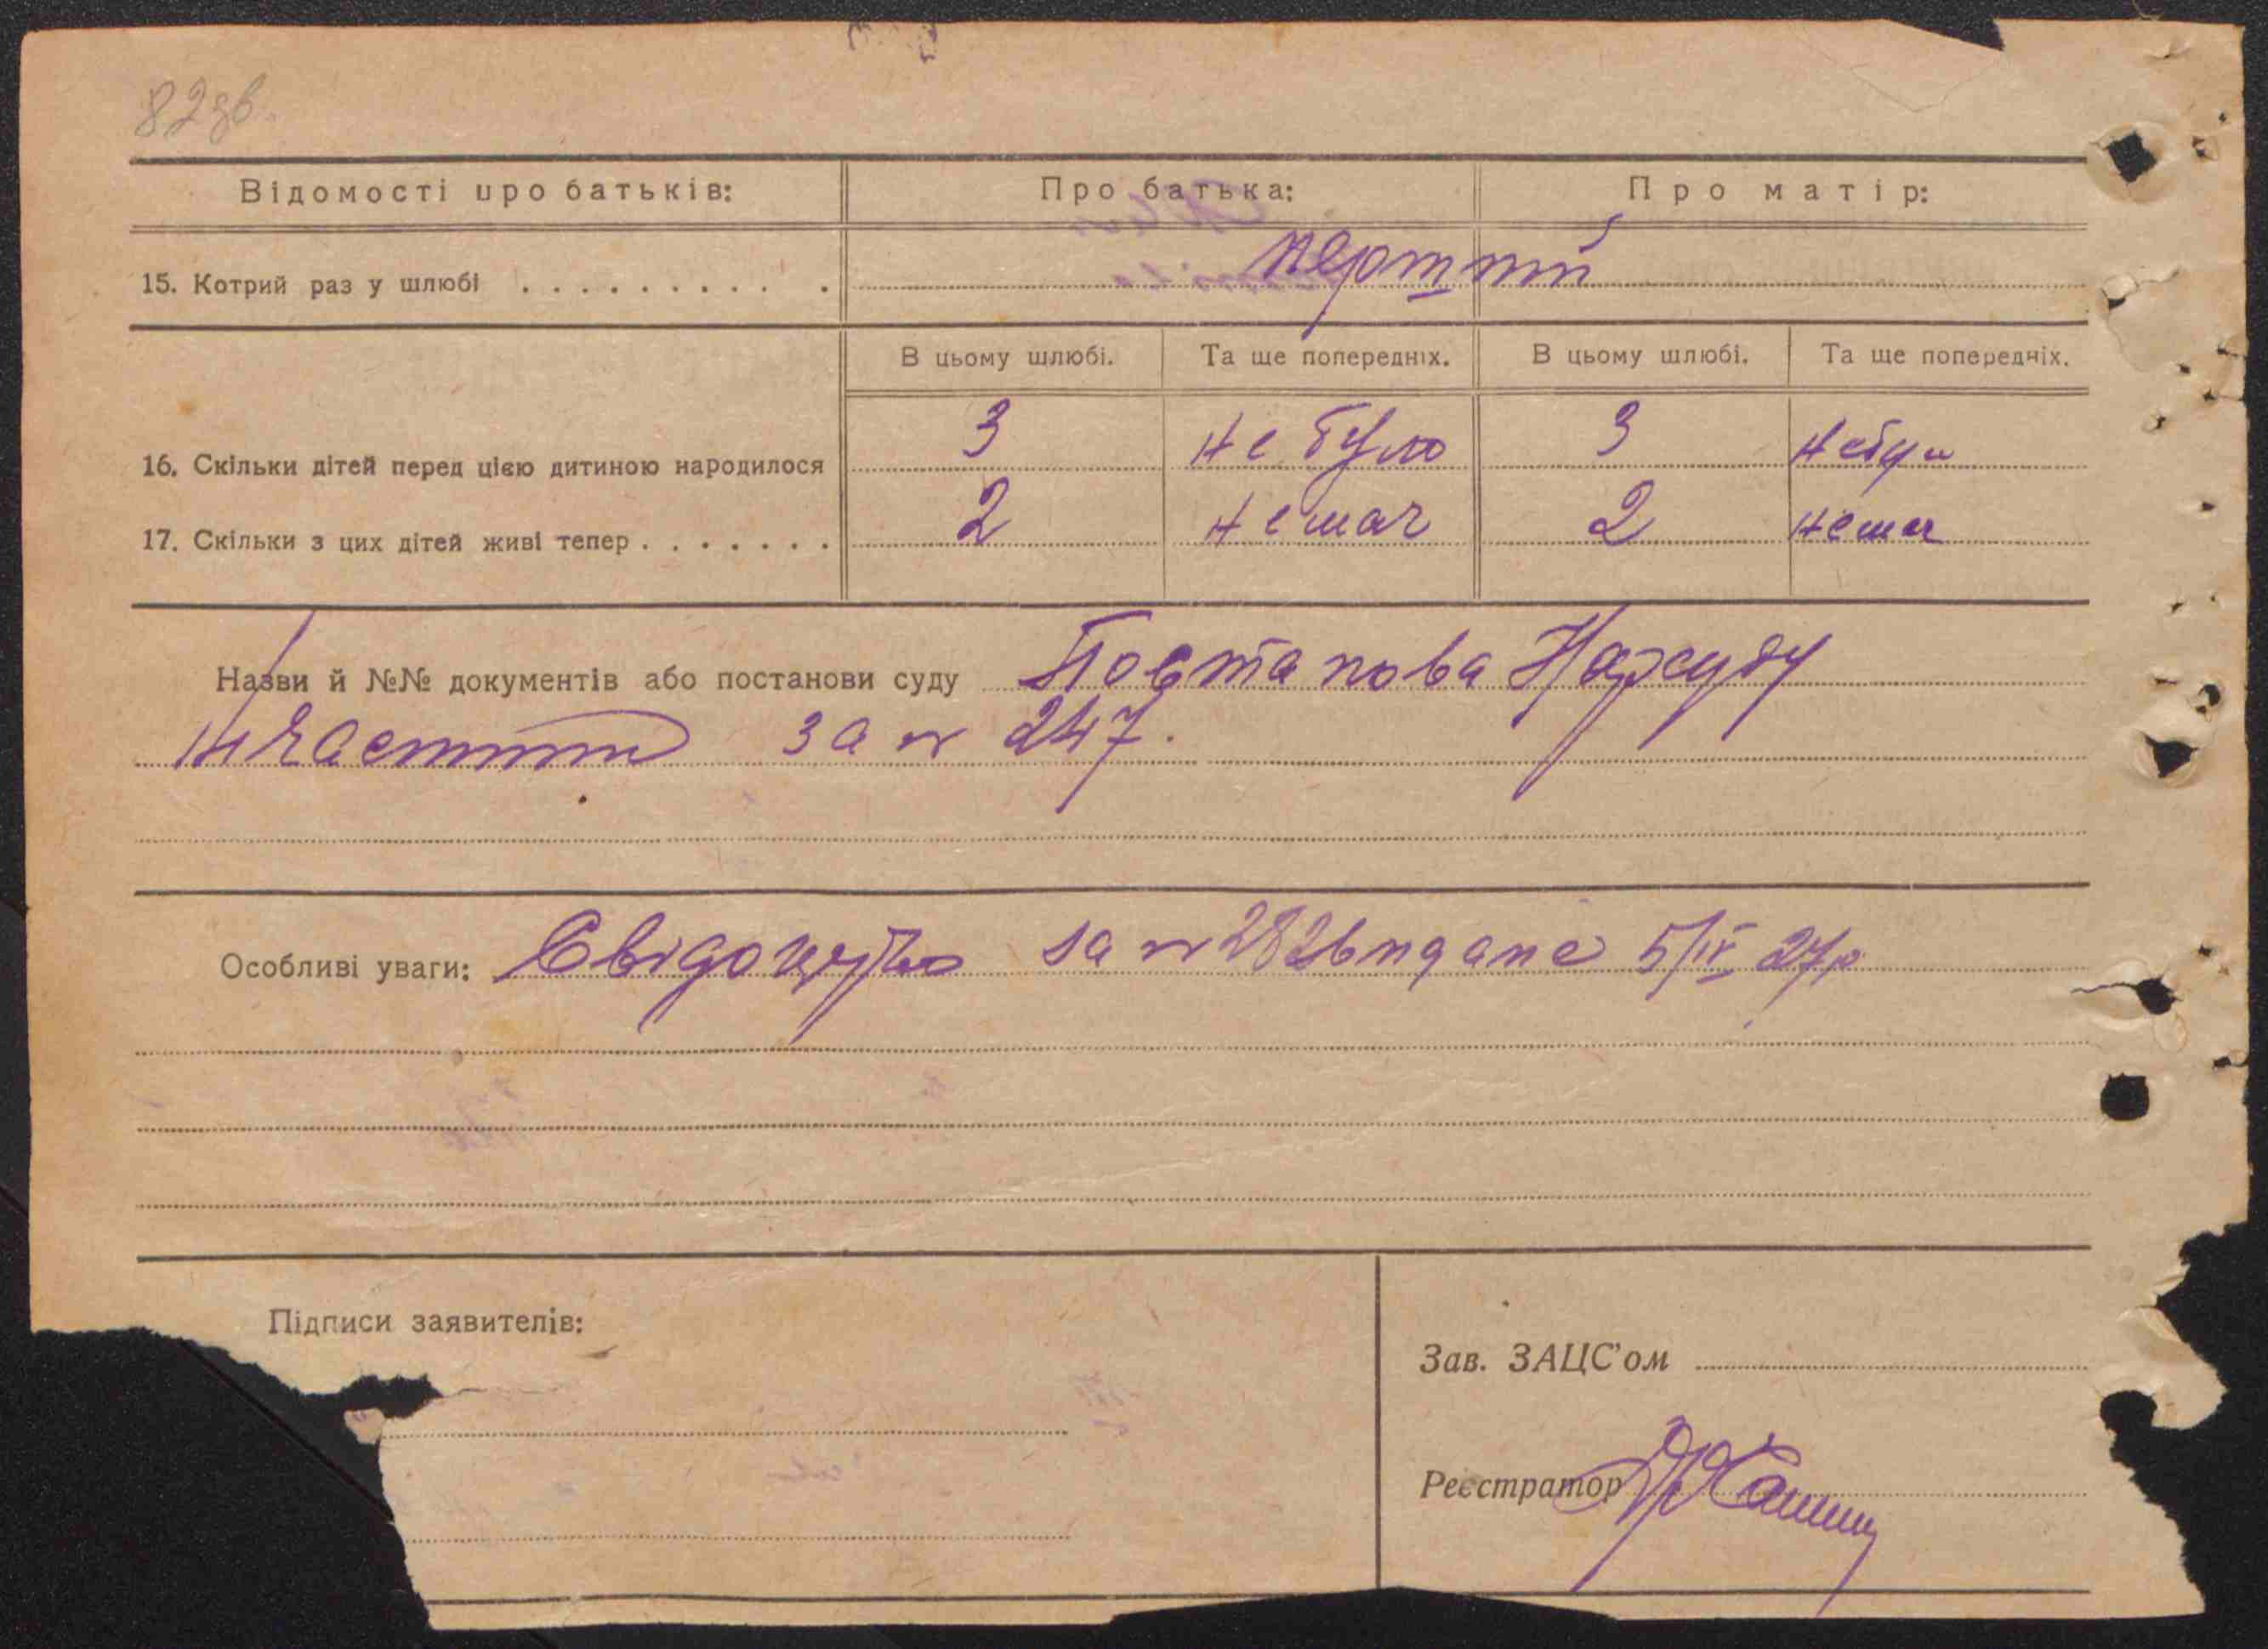 82зв.
Відомості про батьків: Про батька: Про матір:
15. Котрий раз у шлюбі . . . . . . . . . . перший
В цьому шлюбі. Та ще попередніх. В цьому шлюбі. Та ще попередніх.
16. Скільки дітей перед цією дитиною народилося 3 не було 3 не було
17. Скільки з цих дітей живі тепер . . . . . . . 2 немає 2 немає
Назви й №№ документів або постанови суду Постанова Нарсуду
дільниці за № 247.
Особливі уваги: Свідоцтво за № 282 видане 5/IV 27р
Підписи заявителів:
Зав. ЗАЦС'ом
Реєстратор